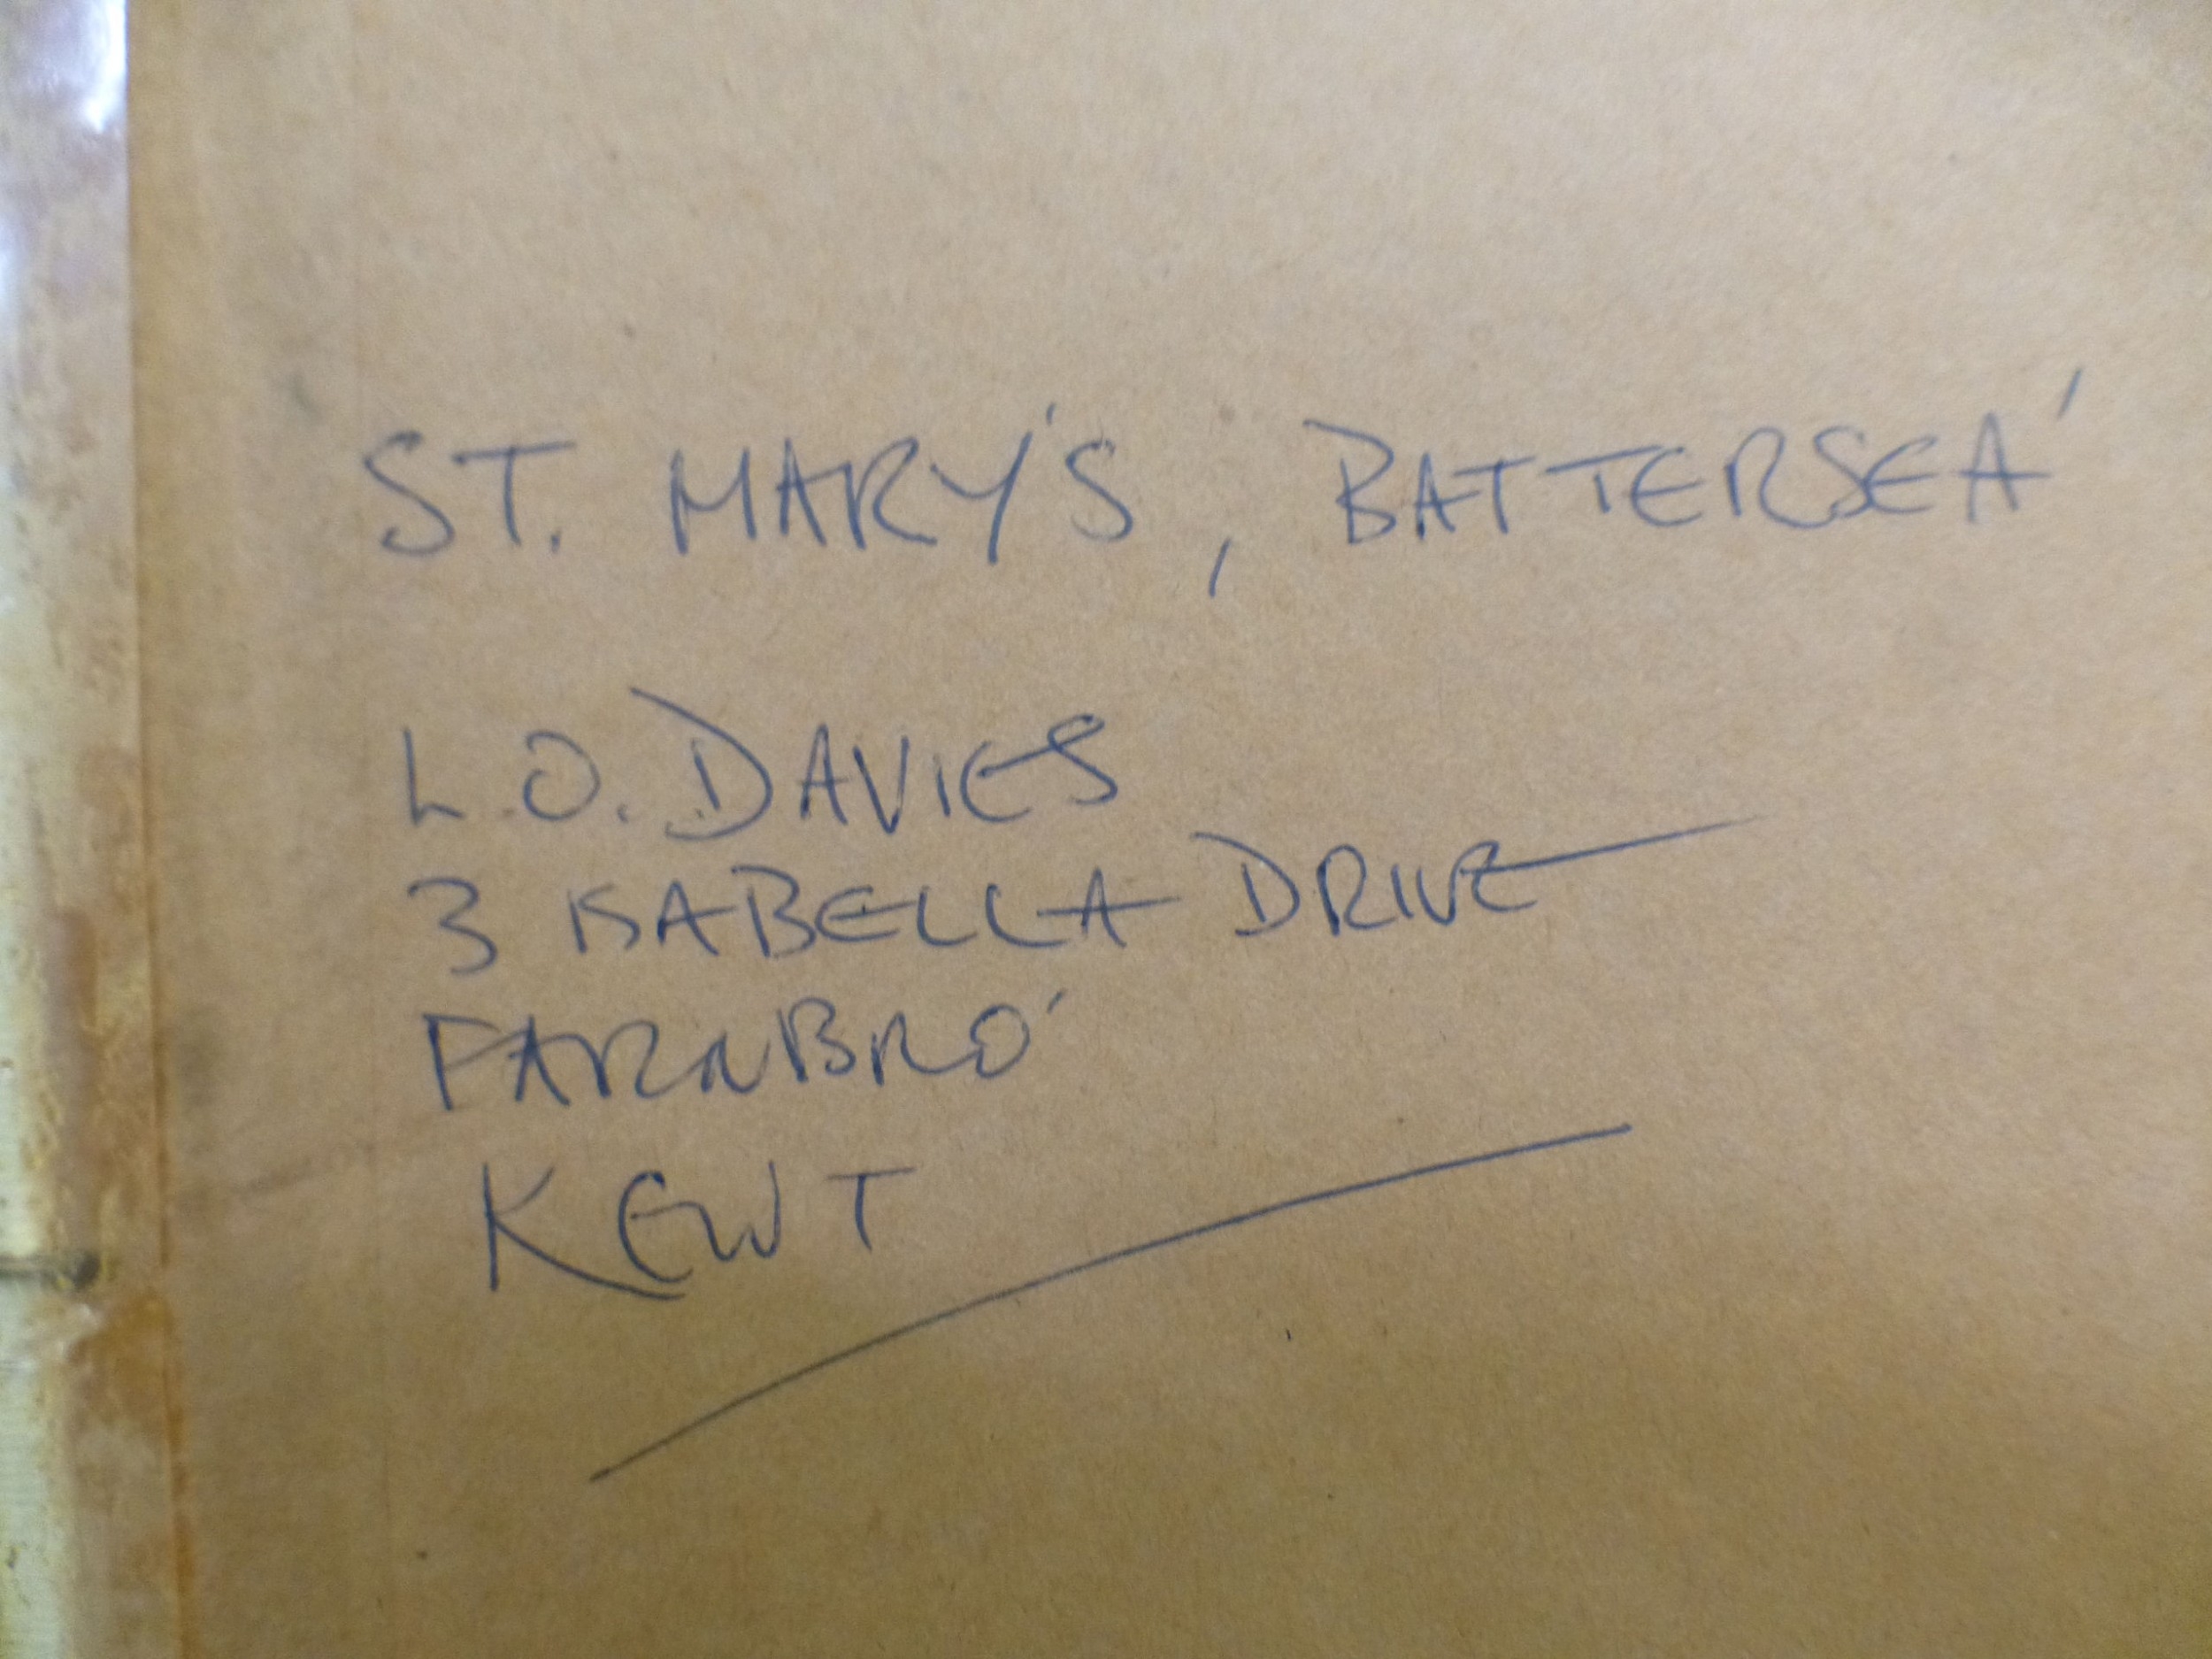 ST. MARY'S, BATTERSEA'
L.O. DAVIES
3 ISABELLA DRIVE
FARNBRO'
KENT